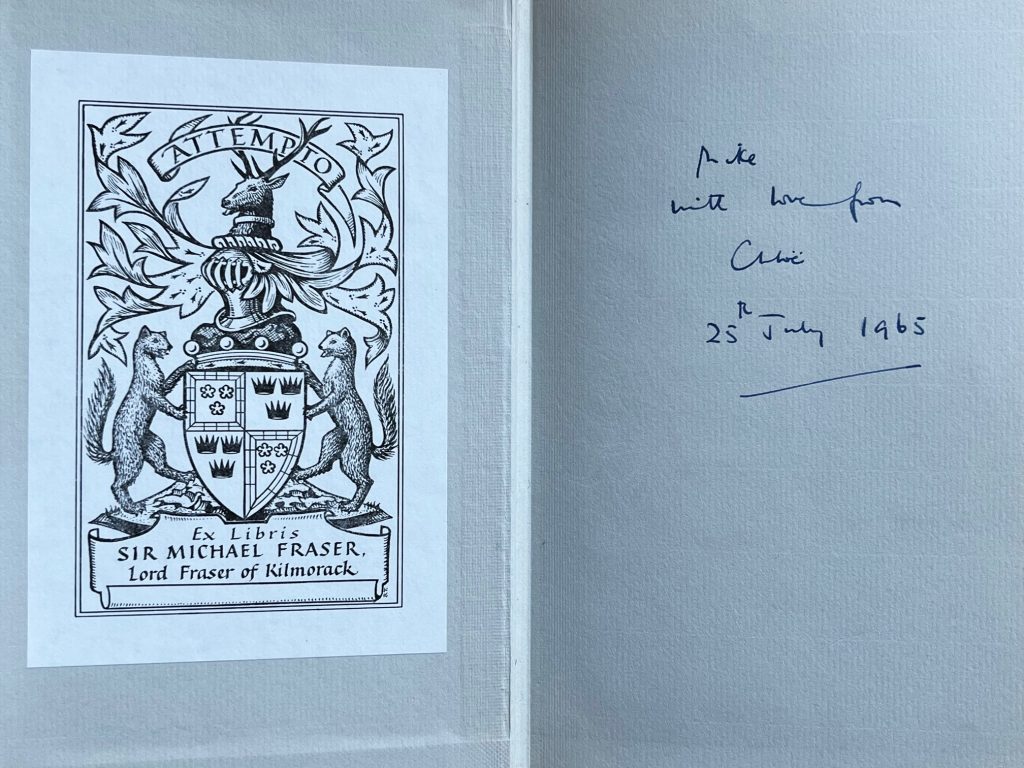 ATTEMPTO
Ex Libris
SIR MICHAEL FRASER,
Lord Fraser of Kilmorack
Mike
with love from
Chloë
25th July 1965